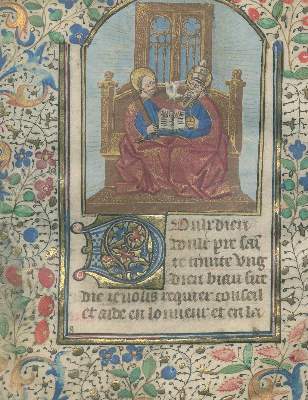 Doulz dieu
doulz pere sai
te trinite ung
dieu biau sire
die ie vous requier conseil
et aide en lonneur et en la